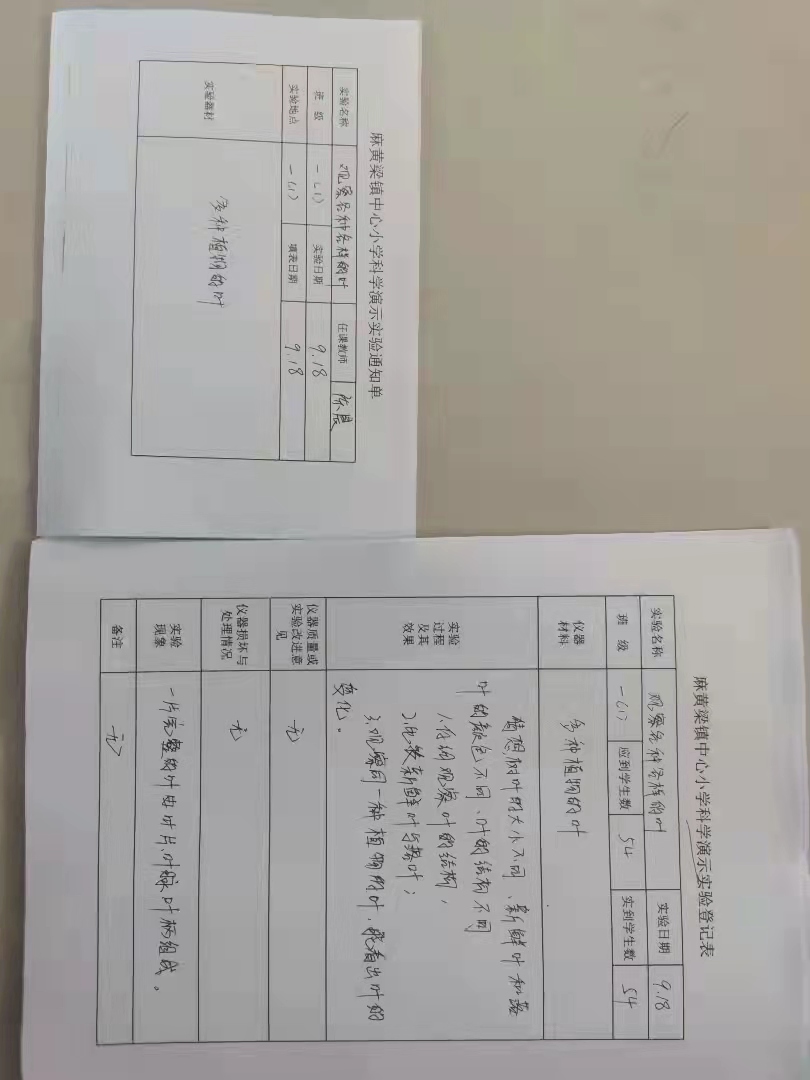 麻黄梁镇中心小学科学演示实验通知单
实验名称 观察各种各样的叶 任课教师 陈晨
班 级 一(1) 实验日期 9.18
实验地点 一(1) 填表日期 9.18
实验器材 多种植物的叶
麻黄梁镇中心小学科学演示实验登记表
实验名称 观察各种各样的叶 实验日期 9.18
班 级 一(1) 应到学生数 54 实到学生数 54
仪器
材料
多种植物的叶
实验
过程
及其
效果
猜想:树叶的大小不同、新鲜叶和落
叶的颜色不同、叶的结构不同
1.仔细观察叶的结构;
2.比较新鲜叶与落叶;
3.观察同一种植物的叶,能看出叶的
变化。
仪器质量或
实验改进意
见
无
仪器损坏与
处理情况
无
实验
现象
一片完整的叶由叶片、叶脉、叶柄组成。
备注 无